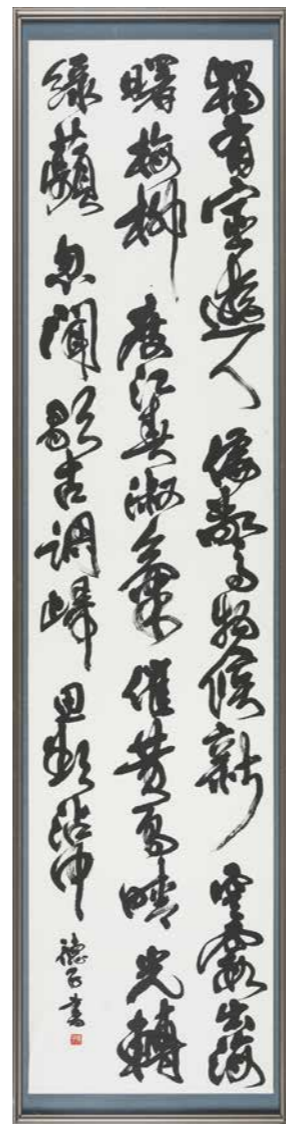 獨有宦遊人偏驚物候新雲霞出海
曙梅柳度江春淑氣催黄鳥晴光轉
緑蘋忽聞歌古調歸思欲沾巾
書